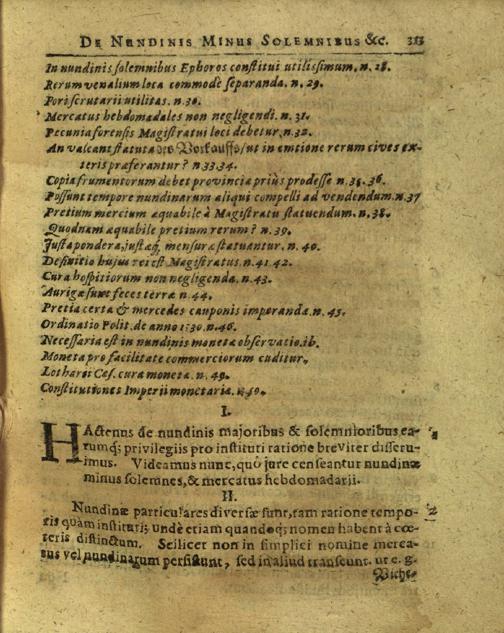 DE NUNDINIS MINUS SOLEMNIBUS &c. 313
In nundinis solemnibus Ephoros constitui utilissimum. n. 28.
Rerum venalium loca commodè separanda. n. 29.
Fori scrutarii utilitas. n. 30.
Mercatus hebdomadales non negligendi. n. 31.
Pecunia forensis Magistratui loci debetur. n. 32.
An valeant statuta des Vorkauffs/ ut in emtione rerum cives ex-
teris præferantur? n 33.34.
Copia frumentorum debet provinciæ priùs prodesse n. 35. 36.
Possunt tempore nundinarum aliqui compelli ad vendendum. n. 37
Pretium mercium æquabile à Magistratu statuendum. n. 38.
Quodnam æquabile pretium rerum? n. 39.
Justa pondera, justæq; mensuræ statuantur. n. 40.
Definitio hujus rei est Magistratus. n. 41. 42.
Cura hospitiorum non negligenda. n. 43.
Aurigæ sunt feces terræ n. 44.
Pretia certa & mercedes cauponis imponenda. n. 45.
Ordinatio Polit. de anno 1530. n. 46.
Necessaria est in nundinis monetæ observatio. ib.
Moneta pro facilitate commerciorum cuditur.
Lotharii Cæs. cura monetæ. n. 49.
Constitutiones Imperii monetariæ. n. 50.
I.
HActenus de nundinis majoribus & solemnioribus, ea-
rumq; privilegiis pro instituti ratione breviter disseru-
imus. Videamus nunc, quô jure censeantur nundinæ
minus solemnes, & mercatus hebdomadarii.
II.
Nundinæ particulares diversæ sunt, tam ratione tempo- 2
ris quàm instituti; undè etiam quandoq; nomen habent à cæ-
teris distinctum. Scilicet non in simplici nomine merca-
tus vel nundinarum persistunt, sed in aliud transeunt. ut e. g.